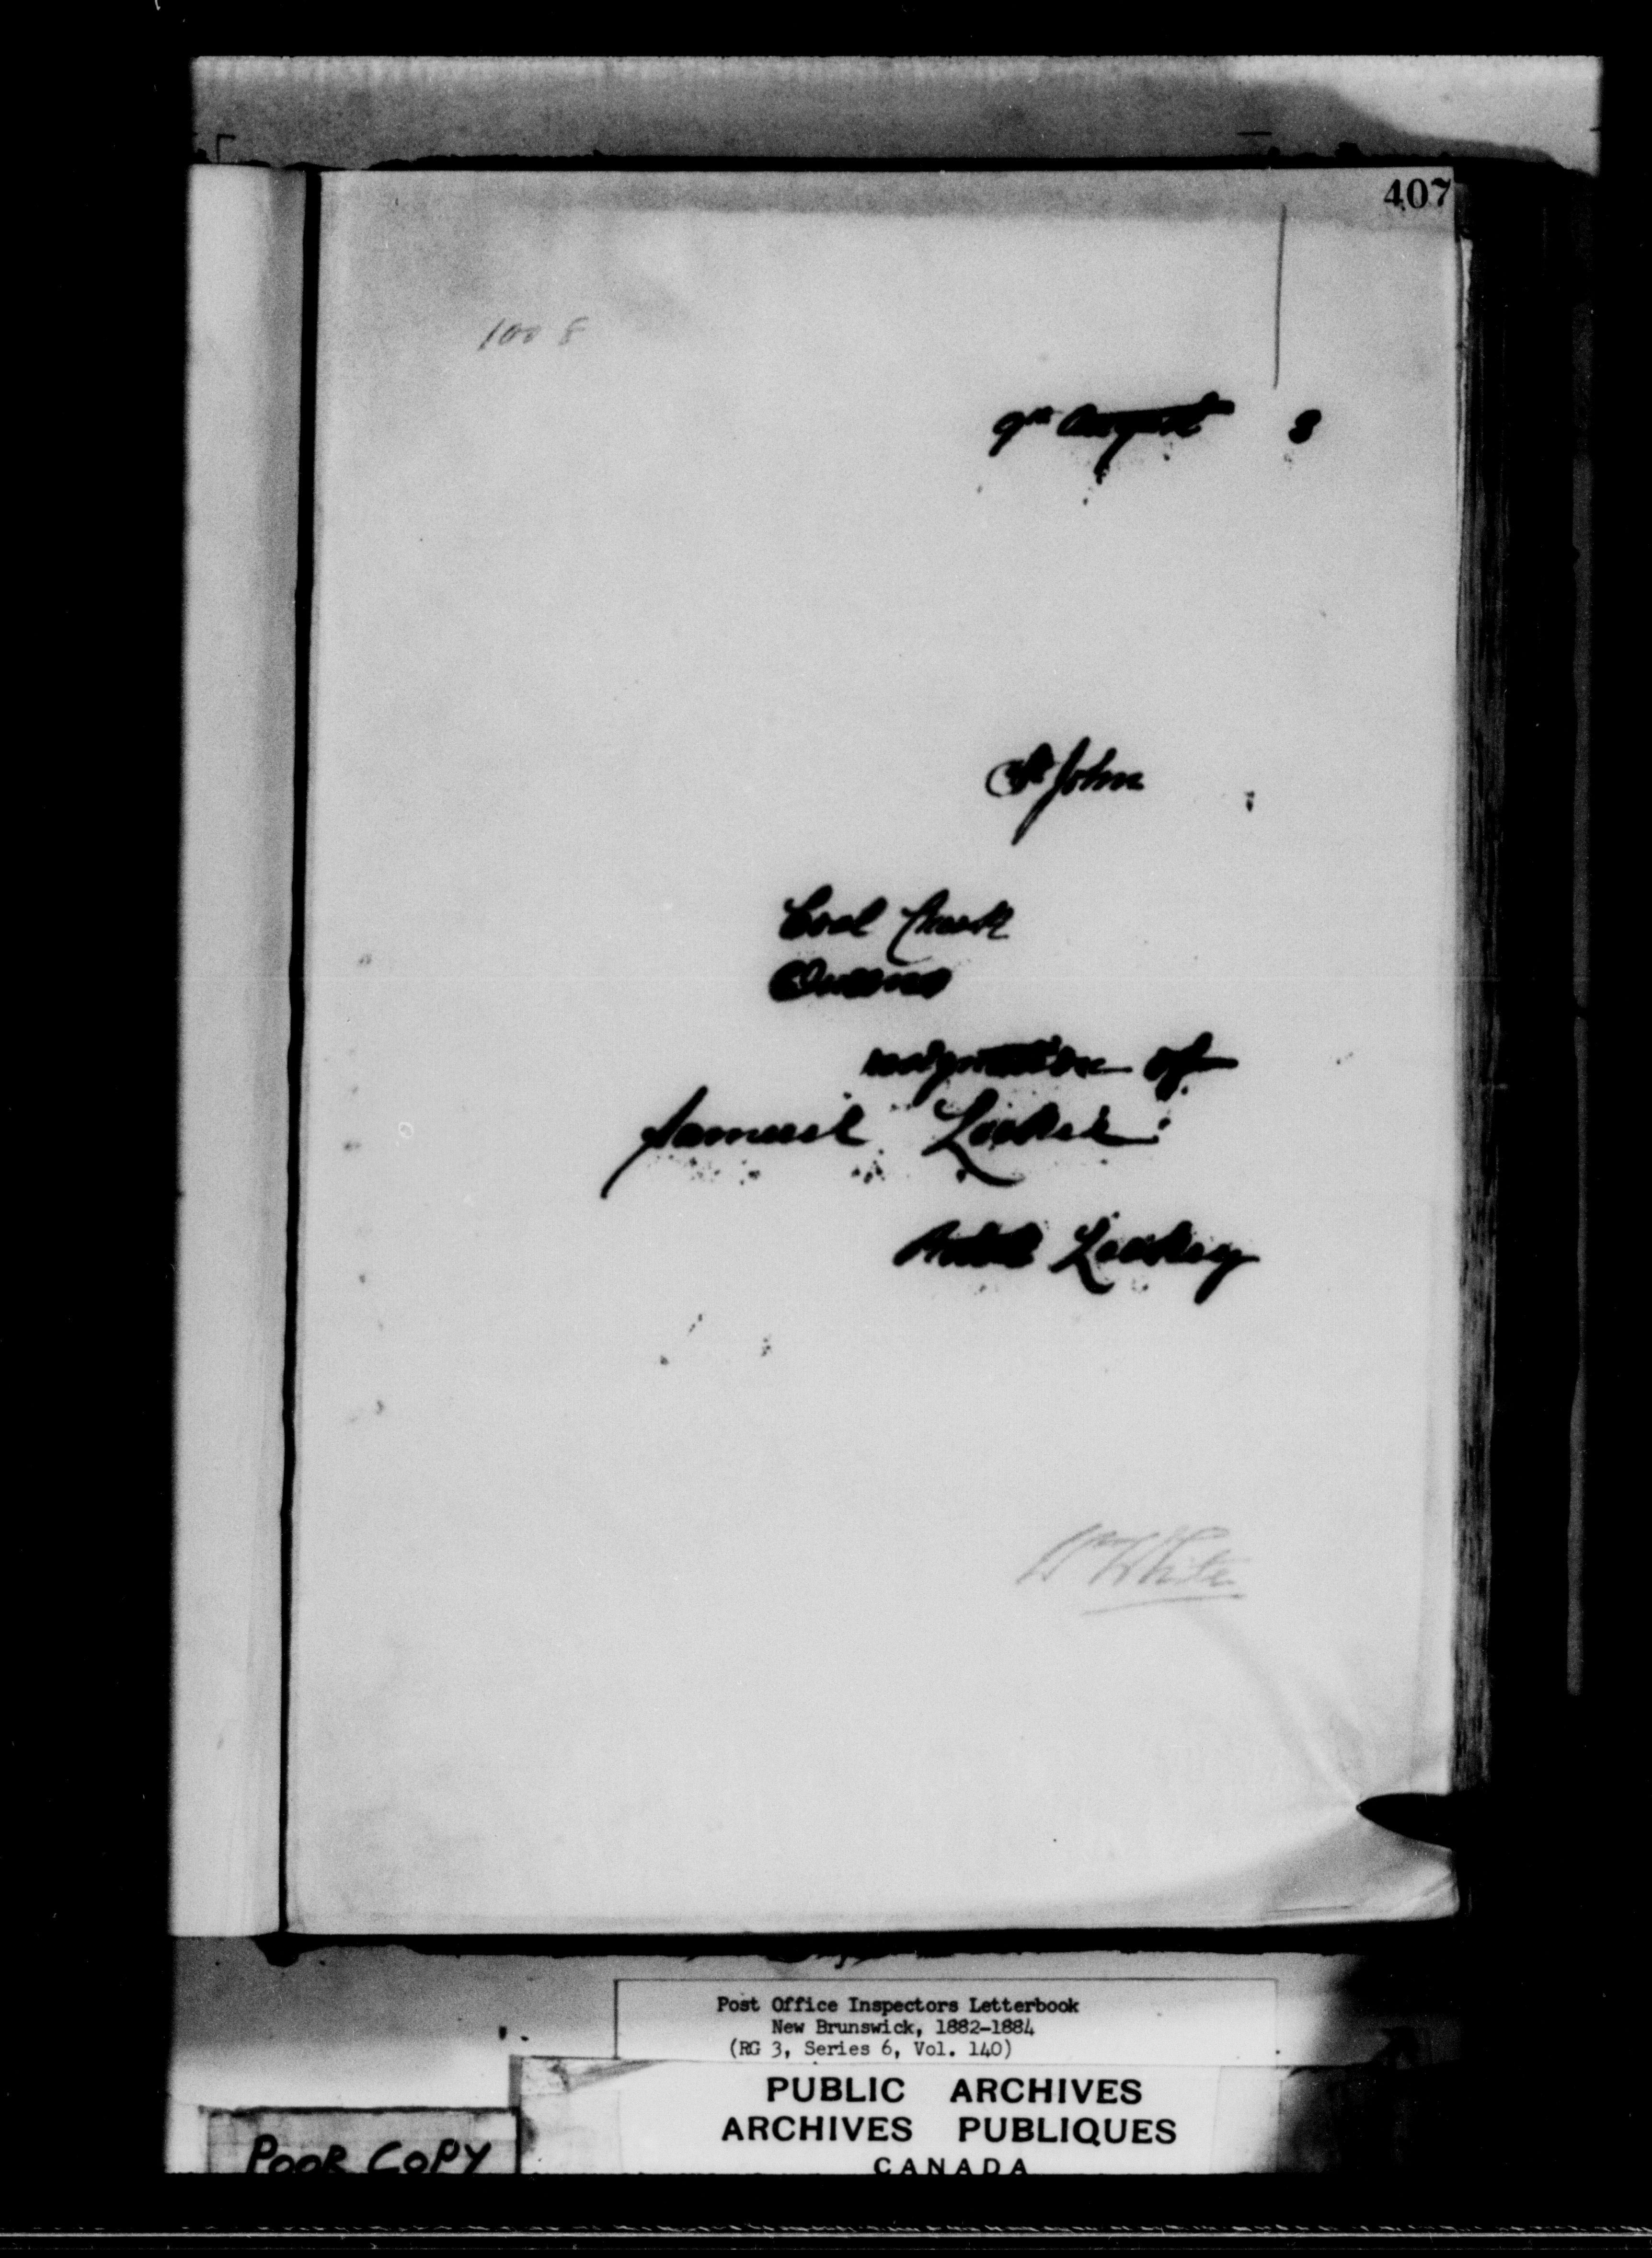 407
100 8
9th August 3
St John
Coal Creek
Queens
resignation of
Samuel
Wm White
Post Office Inspectors Letterbook
New Brunswick, 1882-1884
(RG 3, Series 6, Vol. 140)
PUBLIC ARCHIVES
ARCHIVES PUBLIQUES
CANADA
POOR COPY